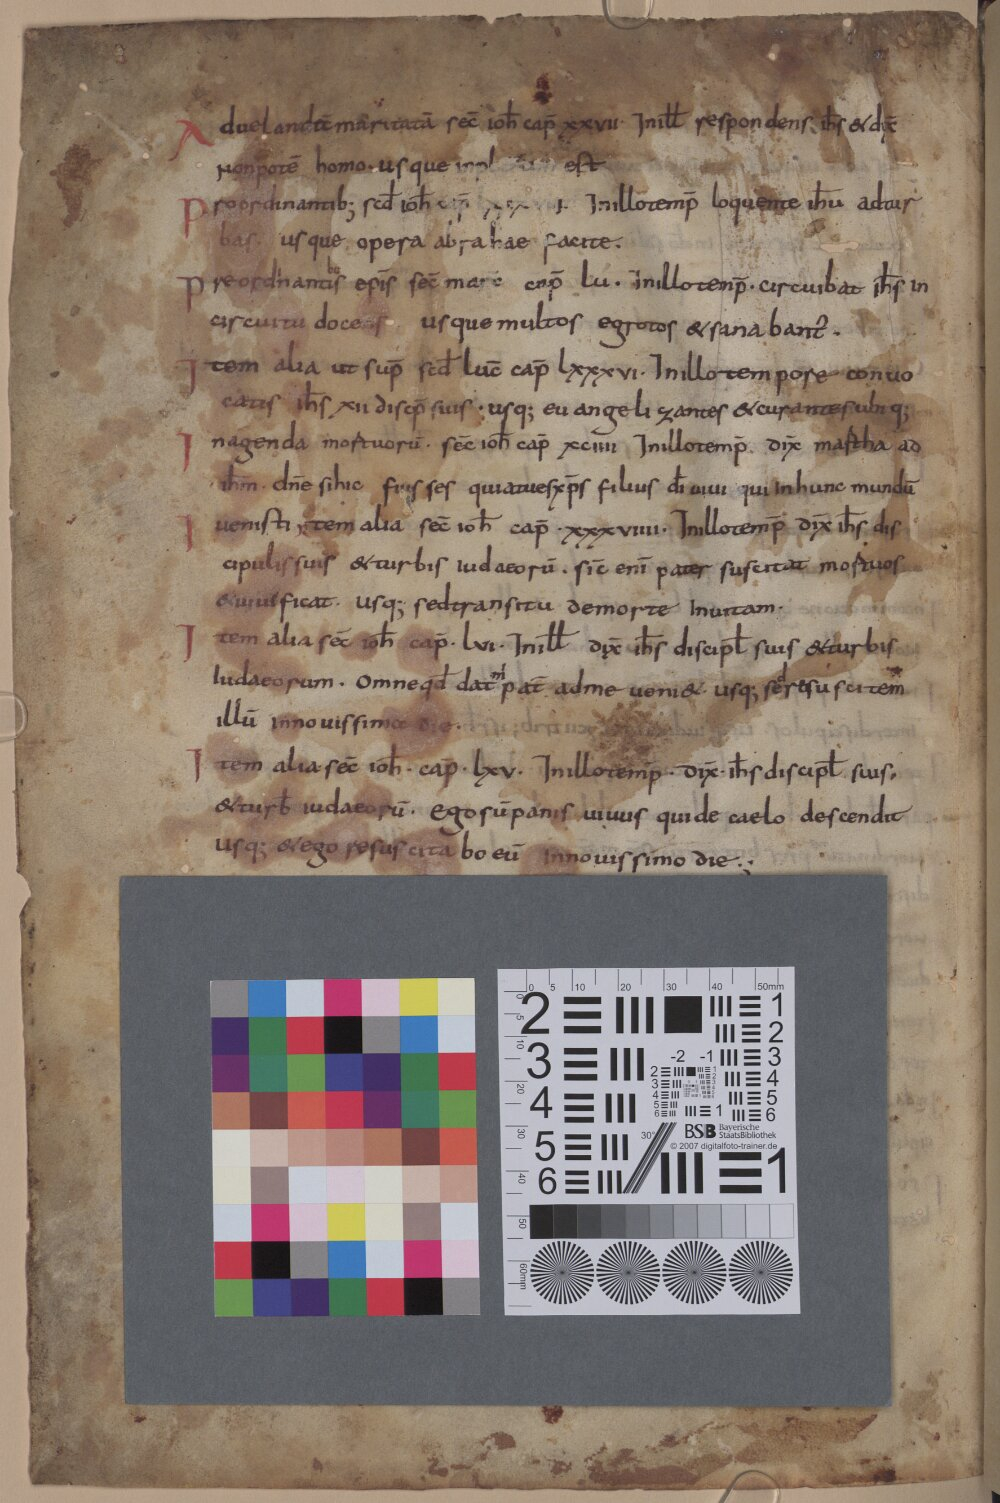 Aduelandā maritatā sec̄ ioħ cap̄ xxvii· Inill̄ respondens iħs & dix̄
Nonpotē homo· usque inpletum est
Proordinantib; scd̄ ioħ cap̄ Inillotemp̄ loquente iħu adtur
bas· usque opera abrahae facite.
Preordinantis ep̄is sec̄ marc cap̄ lu· Inillotemp̄· circuibat iħs in
circuitu docens usque multos egrotos & sanabant̄.
Item alia ut sup̄ scd̄ luc̄ cap̄ lxxxvi· Inillotempore conuo
catis iħs xii discip̄ suis· usq; euangelizantes & curantes ubiq;
Inagenda mortuorū· sec̄ ioħ cap̄ xciiii Inillotemp̄. dix̄ martha ad
iħm· dn̄e sihic fuisses quiatuesxp̄s filius di uiui qui inhunc mundū
uenisti Item alia sec̄ ioħ cap̄ ·xxxviiii· Inillotemp̄ dix̄ iħs dis
cipulissuis & turbis iudaeorū· sic̄ eni pater suscitat mortuos
& uiuificat· usq; sedtransitu demorte inuitam·
Item alia sec̄ ioħ cap̄· lvi· Inill̄ dix̄ iħs discipl̄ suis & turbis
Iudaeorum· Omneqd̄ dat mi pat̄ adme ueni&· usq; sed resuscitem
illū innouissimo die·
Item alia sec̄ ioħ· cap̄· lxv· Inillotemp̄· dix̄· iħs discipl̄ suis,
& turb̄ iudaeorū· egosūpanis uiuus quide caelo descendit
usq; & ego resuscitabo eū innouissimo die·:
0 5 10 20 30 40 50mm
2 1
2
3 -2 -1 3
4 4
5
1 6
5 30° BSB Bayerische
StaatsBibliothek
© 2007 digitalfoto-trainer.de
6 1
0 5 10 20 30 40 50 60mm